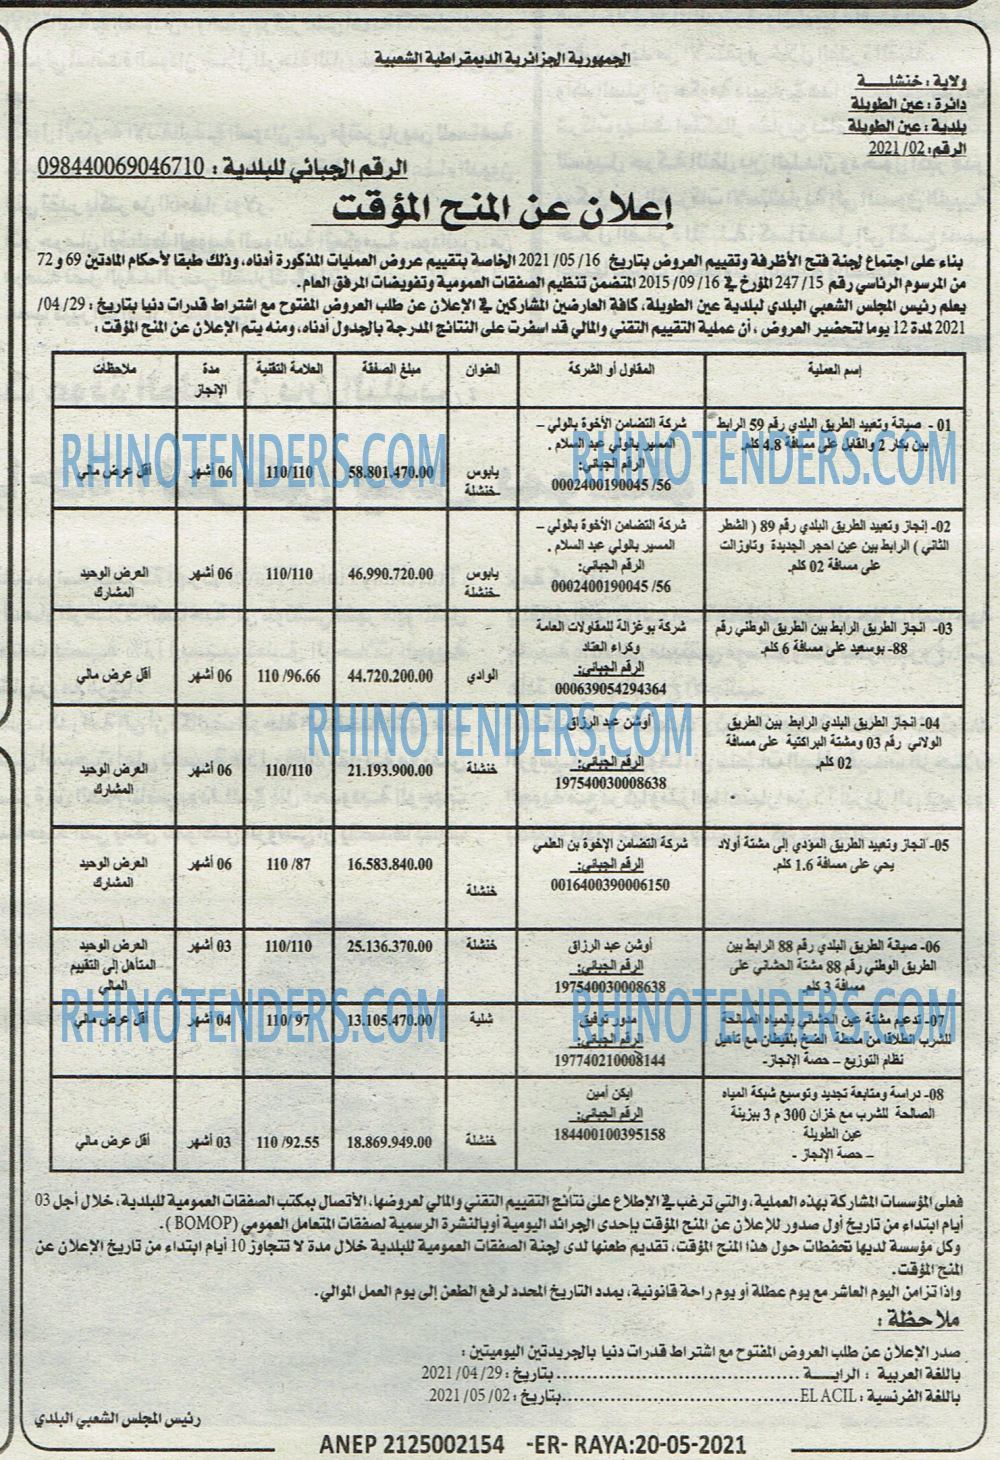 الجمهورية الجزائرية الديمقراطية الشعبية
ولاية : خنشلـــة
دائرة : عين الطويلة
بلدية : عين الطويلة
الرقم: 02/ 2021
الرقم الجبائي للبلدية : 098440069046710
إعلان عن المنح المؤقت
بناء على اجتماع لجنة فتح الأظرفة وتقييم العروض بتاريخ 16/ 05/ 2021 الخاصة بتقييم عروض العمليات المذكورة أدناه، وذلك طبقا لأحكام المادتين 69 و 72
من المرسوم الرئاسي رقم 15/ 247 المؤرخ في 16/ 09/ 2015 المتضمن تنظيم الصفقات العمومية وتفويضات المرفق العام.
يعلم رئيس المجلس الشعبي البلدي لبلدية عين الطويلة، كافة العارضين المشاركين في الإعلان عن طلب العروض المفتوح مع اشتراط قدرات دنيا بتاريخ : 29/ 04/
2021 لمدة 12 يوما لتحضير العروض ، أن عملية التقييم التقني والمالي قد اسفرت على النتائج المدرجة بالجدول أدناه، ومنه يتم الإعلان عن المنح المؤقت :
إسم العملية
المقاول أو الشركة
العنوان
مبلغ الصفقة
العلامة التقنية
مدة
الإنجاز
ملاحظات
01 - صيانة وتعبيد الطريق البلدي رقم 59 الرابط
بين بكار 2 والقابل على مسافة 4.8 كلم.
شركة التضامن الأخوة بالولي –
المسير بالولي عبد السلام .
الرقم الجبائي:
56/ 0002400190045
يابوس
-خنشلة
58.801.470.00
110/110
06 أشهر
أقل عرض مالي
02- إنجاز وتعبيد الطريق البلدي رقم 89 ( الشطر
الثاني ) الرابط بين عين احجر الجديدة وتاوزالت
على مسافة 02 كلم.
شركة التضامن الأخوة بالولي –
المسير بالولي عبد السلام .
الرقم الجبائي:
56/ 0002400190045
يابوس
-خنشلة
46.990.720.00
110/110
06 أشهر
العرض الوحيد
المشارك
03- انجاز الطريق الرابط بين الطريق الوطني رقم
88- بوسعيد على مسافة 6 كلم.
شركة بوغزالة للمقاولات العامة
وكراء العتاد
الرقم الجبائي:
000639054294364
الوادي
44.720.200.00
96.66/ 110
06 أشهر
أقل عرض مالي
04- انجاز الطريق البلدي الرابط بين الطريق
الولائي رقم 03 ومشتة البراكتية على مسافة
02 كلم.
أوشن عبد الرزاق
197540030008638
خنشلة
21.193.900.00
110/110
06 أشهر
العرض الوحيد
المشارك
05- انجاز وتعبيد الطريق المؤدي إلى مشتة أولاد
يحي على مسافة 1.6 كلم.
شركة التضامن الإخوة بن العلمي
الرقم الجبائي:
0016400390006150
خنشلة
16.583.840.00
87/ 110
06 أشهر
العرض الوحيد
المشارك
06- صيانة الطريق البلدي رقم 88 الرابط بين
الطريق الوطني رقم 88 مشتة الحشاني على
مسافة 3 كلم
أوشن عبد الرزاق
الرقم الجبائي:
197540030008638
خنشلة
25.136.370.00
110/110
03 أشهر
العرض الوحيد
المتأهل إلى التقييم
المالي
07- تدعيم مشتة عين الحشاني بالمياه الصالحة
للشرب انطلاقا من محطة الضخ بلقيطان مع تأهيل
نظام التوزيع – حصة الإنجاز-
مدور توفيق
الرقم الجبائي:
197740210008144
شلية
13.105.470.00
97 /110
04 أشهر
أقل عرض مالي
08- دراسة ومتابعة تجديد وتوسيع شبكة المياه
الصالحة للشرب مع خزان 300 م 3 ببزينة
عين الطويلة
– حصة الإنجاز -
ايكن أمين
الرقم الجبائي:
184400100395158
خنشلة
18.869.949.00
92.55/ 110
03 أشهر
أقل عرض مالي
RHINOTENDERS.COM
RHINOTENDERS.COM
RHINOTENDERS.COM
RHINOTENDERS.COM
RHINOTENDERS.COM
فعلى المؤسسات المشاركة بهذه العملية، والتي ترغب في الإطلاع على نتائج التقييم التقني والمالي لعروضها، الأتصال بمكتب الصفقات العمومية للبلدية ، خلال أجل 03
أيام ابتداء من تاريخ أول صدور للإعلان عن المنح المؤقت بإحدى الجرائد اليومية أو بالنشرة الرسمية لصفقات المتعامل العمومي (BOMOP ) .
وكل مؤسسة لديها تحفظات حول هذا المنح المؤقت، تقديم طعنها لدى لجنة الصفقات العمومية للبلدية خلال مدة لا تتجاوز 10 أيام ابتداء من تاريخ الإعلان عن
المنح المؤقت.
وإذا تزامن اليوم العاشر مع يوم عطلة أو يوم راحة قانونية، يمدد التاريخ المحدد لرفع الطعن إلى يوم العمل الموالي.
ملاحظة :
صدر الإعلان عن طلب العروض المفتوح مع اشتراط قدرات دنيا بالجريدتين اليوميتين :
باللغة العربية : الرايـــة ........................................ بتاريخ : 29/ 04/ 2021
باللغة الفرنسية : EL ACIL........................................بتاريخ : 02/ 05/ 2021
رئيس المجلس الشعبي البلدي
ANEP 2125002154 -ER- RAYA:20-05-2021